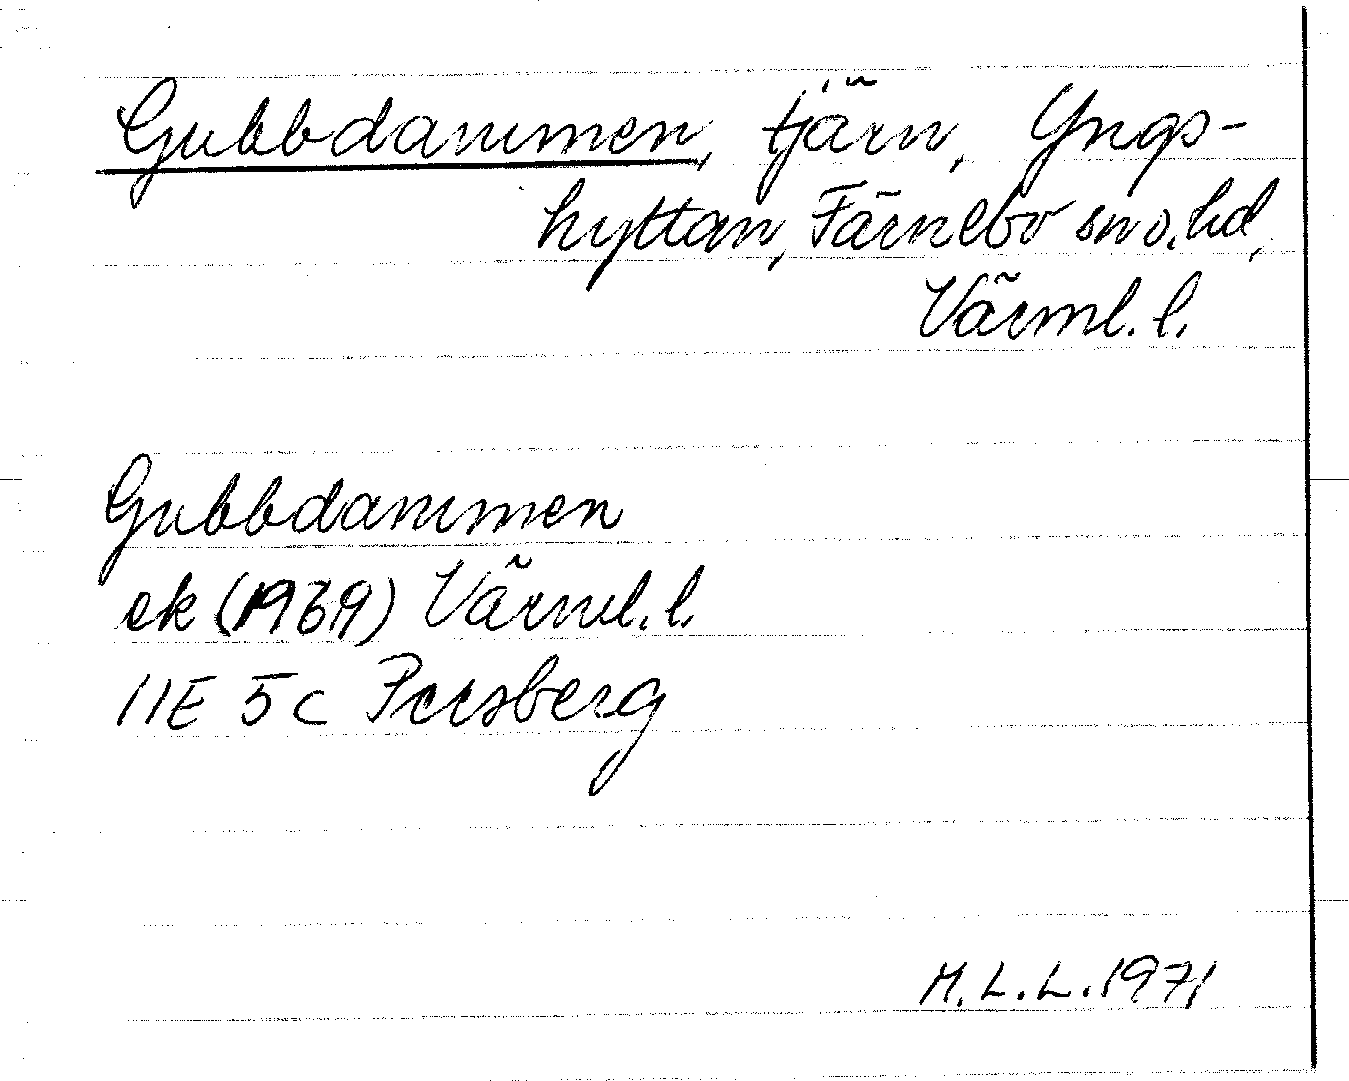 Gubbdammen, tjärn, Yngs-
hyttan, Färnebo sn o. hd,
Värml. l.
Gubbdammen
ek (1969) Värml. l.
11E 5c Persberg
M.L.L. 1971